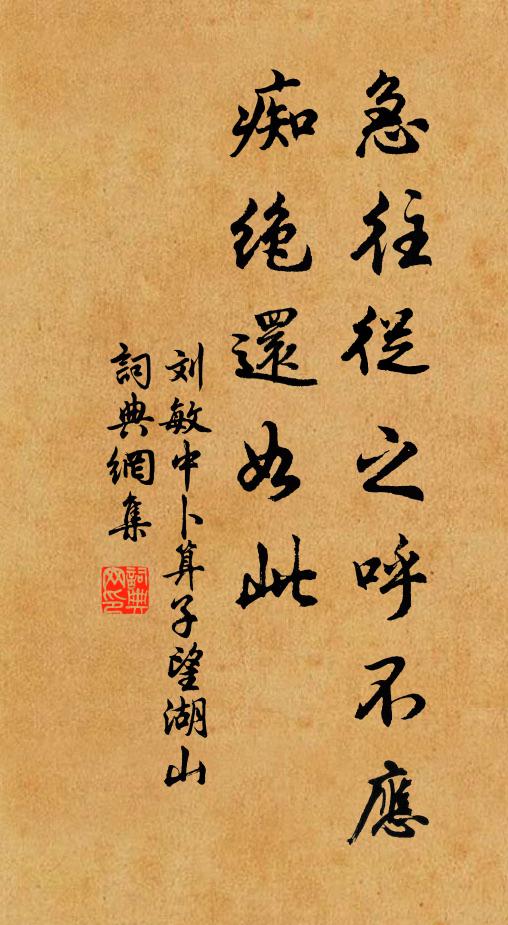 急往從之呼不應
痴绝還如此
刘敏中卜算子望湖山
詞典網集
詞典網印